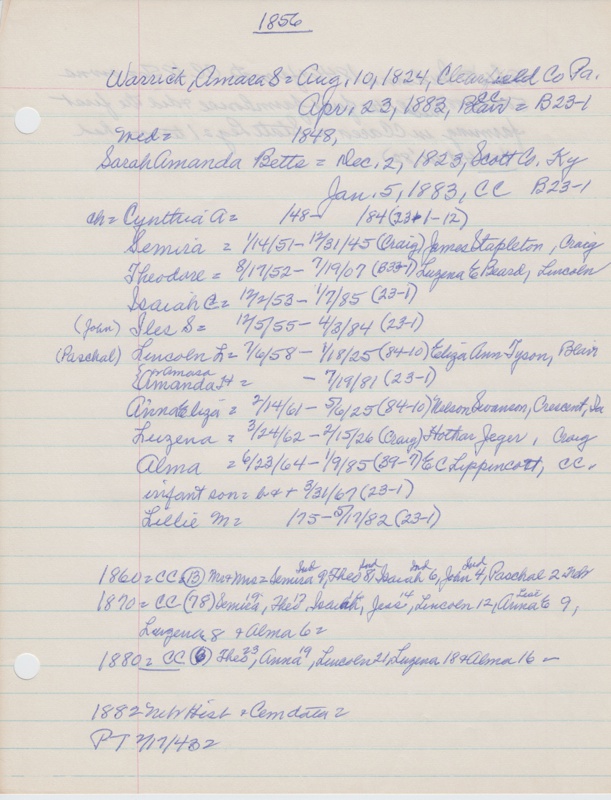 1856
Warrick, Amasa S = Aug. 10, 1824, Clearfield Co Pa.
Apr. 23, 1883, Blair = B23-1
CC
med = 1848,
Sarah Amanda Betts = Dec. 2, 1823, Scott Co. Ky
Jan. 5, 1883, CC B23-1
ch = Cynthia A = /48- /84 (23-1-12)
Semira = 1/14/51 - 12/31/45 (Craig) James Stapleton, Craig
Theodore = 8/17/52 - 7/19/07 (B33-1) Luzena E Beard, Lincoln
Isaiah C = 12/2/53 - 1/7/85 (23-1)
(John) Iles S = 12/5/55 - 4/3/84 (23-1)
(Paschal) Lincoln L = 7/6/58 - 1/18/25 (84-10) Eliza Ann Tyson, Blair
or amasa
Amanda H = - 7/19/81 (23-1)
Anna Eliza = 2/14/61 - 5/6/25 (84-10) Nelson Swanson, Crescent, Ia
Luzena = 3/24/62 - 2/15/26 (Craig) Hothar Jeger, Craig
Alma = 6/23/64 - 1/9/85 (39-7) E C Lippincott, CC.
infant son = b & + 3/31/67 (23-1)
Lillie M = /75 - 5/17/82 (23-1)
1860 = CC (13) Mr & Mrs = Semira 9, Theo 8, Isaiah 6, John 4, Paschal 2 Nebr
Ind Ind Ind
1870 = CC (78) Semira 19, Theo 17, Isaiah, Jess 14, Lincoln 12, Anna E 9,
Luzena 8 & Alma 6 =
1880 = CC (6) Theo 23, Anna 19, Lincoln 21, Luzena 18 & Alma 16 -
1882 Neb Hist & Cem data =
PT 2/17/432